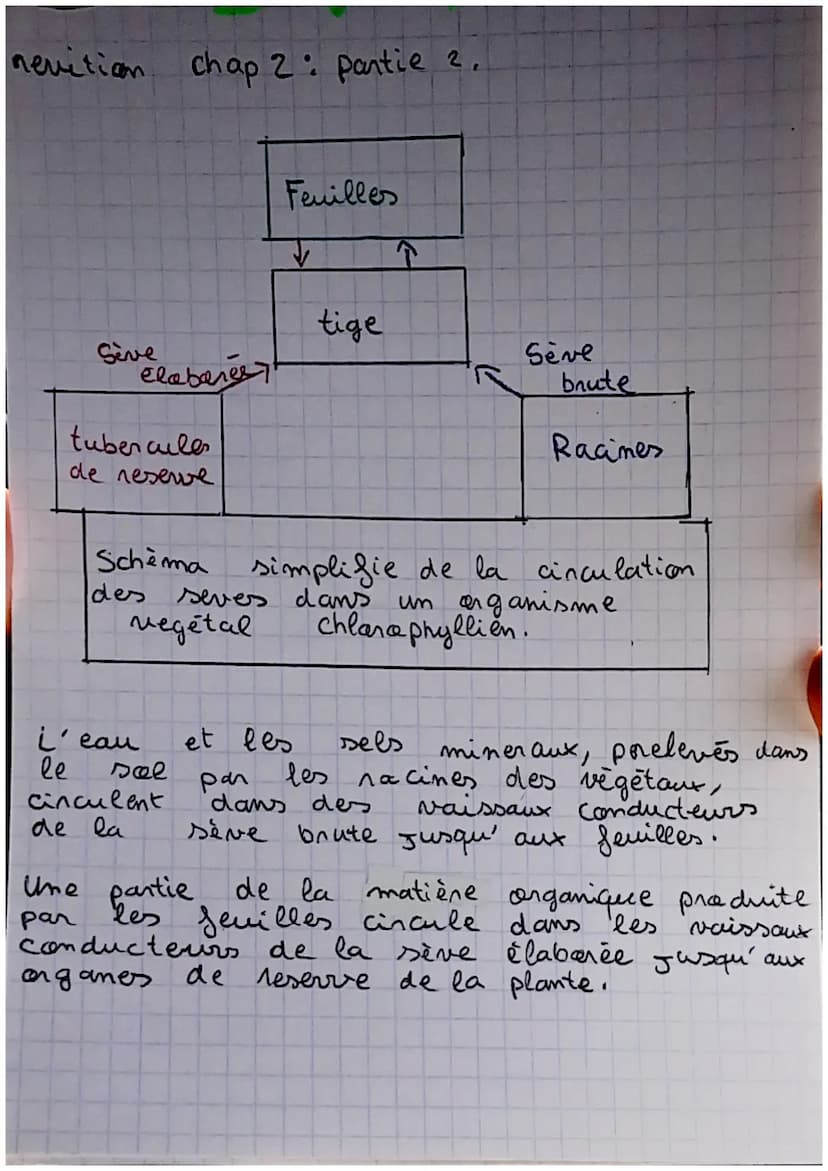 revition chap 2 : partie 2.
Feuilles
tige
Sève
élaborée
Sève
brute
tubercules
de reserve
Racines
Schèma simplifie de la circulation
des seves dans un organisme
vegétal chlorophyllien.
L'eau et les sels mineraux, prelevés dans
le sol par les racines des végétaux,
circulent dans des vaissaux conducteurs
de la sève brute jusqu'aux feuilles.
Une partie de la matière organique produite
par les feuilles circule dans les vaissaux
conducteurs de la sève élaborée jusqu'aux
organes de reserve de la plante.